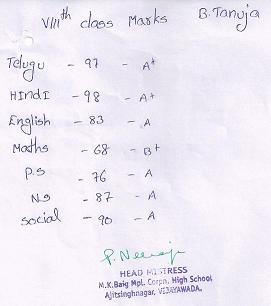 VIIIth class Marks B.Tanuja
Telugu - 97 - A+
HIndI - 98 - A+
English - 83 - A
Maths - 68 - B+
P.S - 76 - A
N.S - 87 - A
Social - 90 - A
HEAD MISTRESS
M.K.Baig Mpl. Corpn. High School
Ajitsinghnagar, VIJAYAWADA.